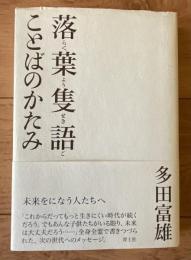 落葉隻語
らくようせきご
ことばのかたみ
多田富雄
未来をになう人たちへ
「これからだってもっと生きにくい時代が続く
だろう。でもあんな子供たちがいる限り、未来
は大丈夫だろう……」全身全霊で書きつづら
れた、次の世代へのメッセージ。
青土社